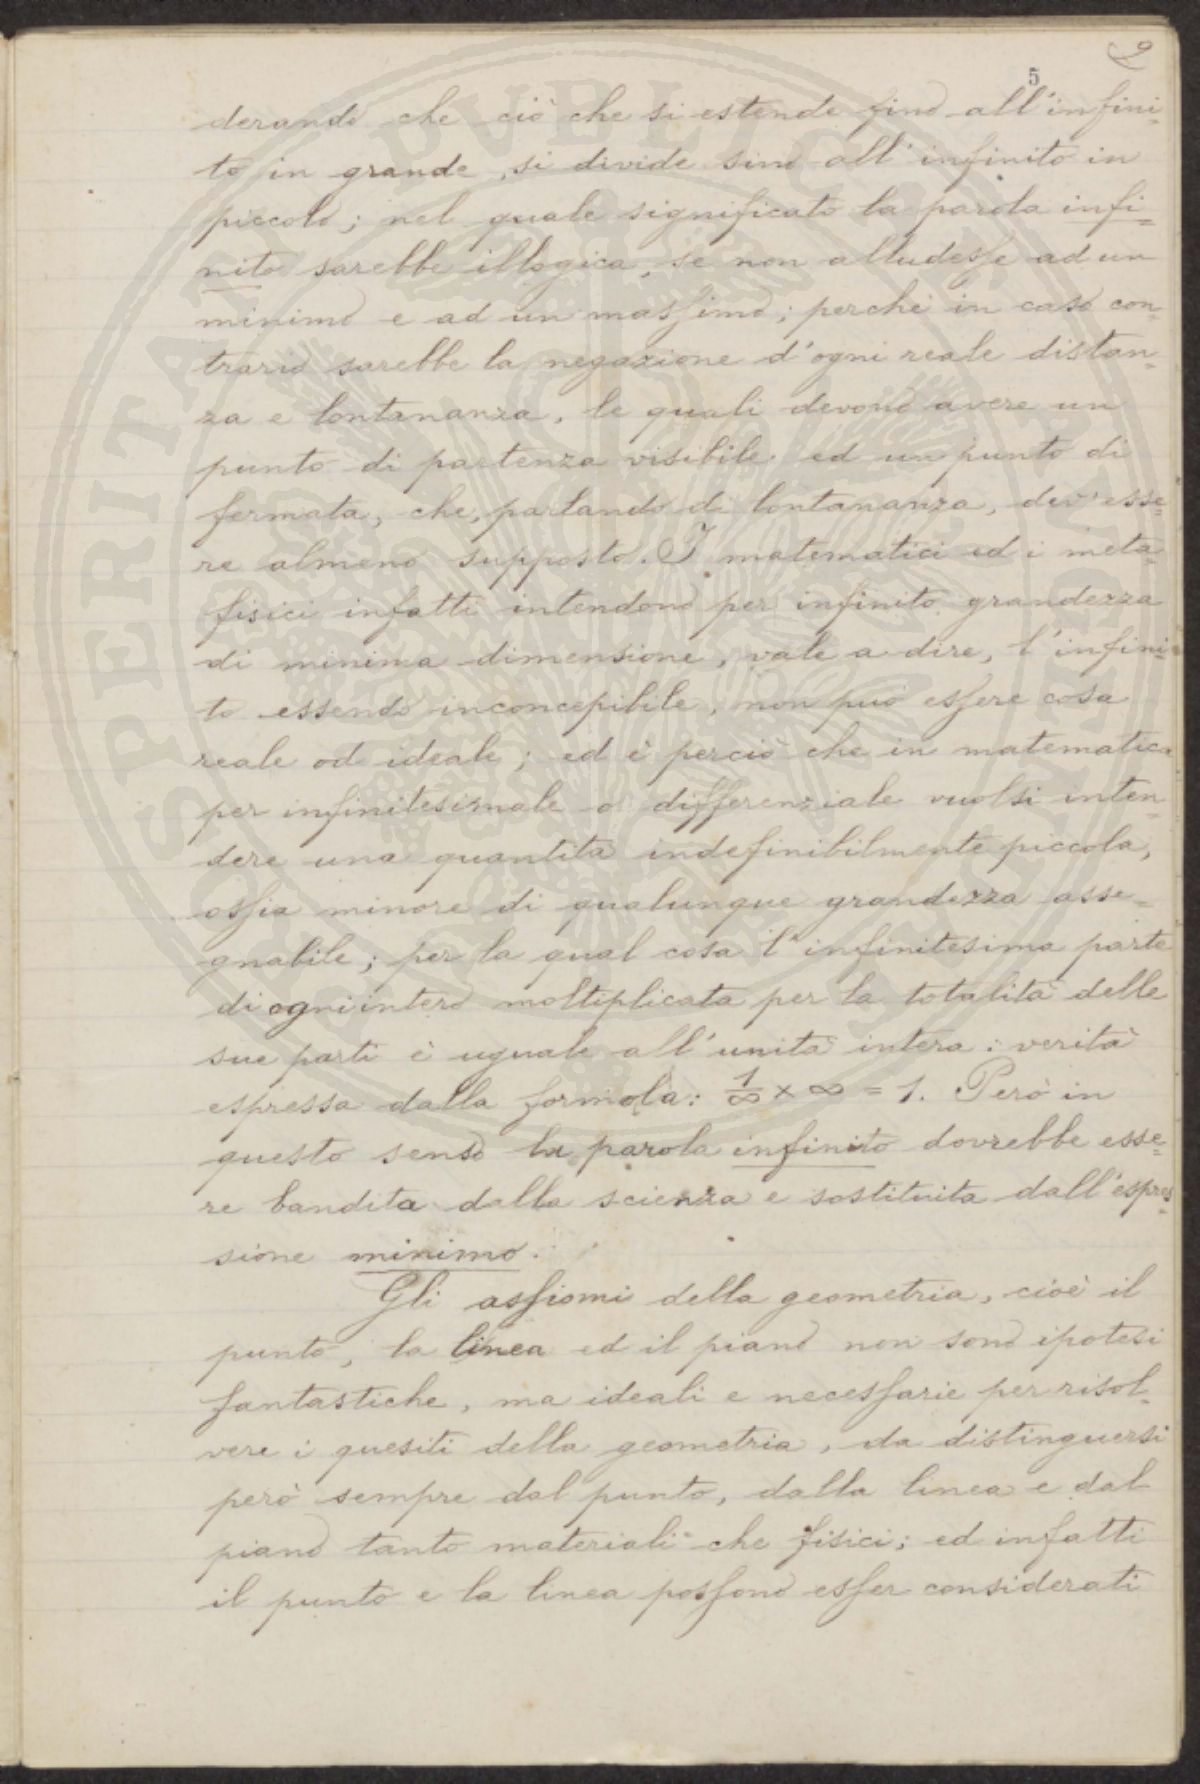 9
5
derando che ciò che si estende fino all'infini-
to in grande, si divide sino all'infinito in
piccolo; nel quale significato la parola infi-
nito sarebbe illogica, se non alludesse ad un
minimo e ad un massimo; perchè in caso con-
trario sarebbe la negazione d'ogni reale distan-
za e lontananza, le quali devono avere un
punto di partenza visibile ed un punto di
fermata, che, parlando di lontananza, dev'esse-
re almeno supposto. I matematici ed i meta-
fisici infatti intendono per infinito grandezza
di minima dimensione, vale a dire, l'infini-
to essendo inconcepibile, non può essere cosa
reale od ideale; ed è perciò che in matematica
per infinitesimale o differenziale vuolsi inten-
dere una quantità indefinibilmente piccola,
ossia minore di qualunque grandezza asse-
gnabile; per la qual cosa l'infinitesima parte
di ogni intero moltiplicata per la totalità delle
sue parti è uguale all'unità intera: verità
espressa dalla formola: 1/∞ × ∞ = 1. Però in
questo senso la parola infinito dovrebbe esse-
re bandita dalla scienza e sostituita dall'espres-
sione minimo.
Gli assiomi della geometria, cioè il
punto, la linea ed il piano non sono ipotesi
fantastiche, ma ideali e necessarie per risol-
vere i quesiti della geometria, da distinguersi
però sempre dal punto, dalla linea e dal
piano tanto materiali che fisici; ed infatti
il punto e la linea possono esser considerati